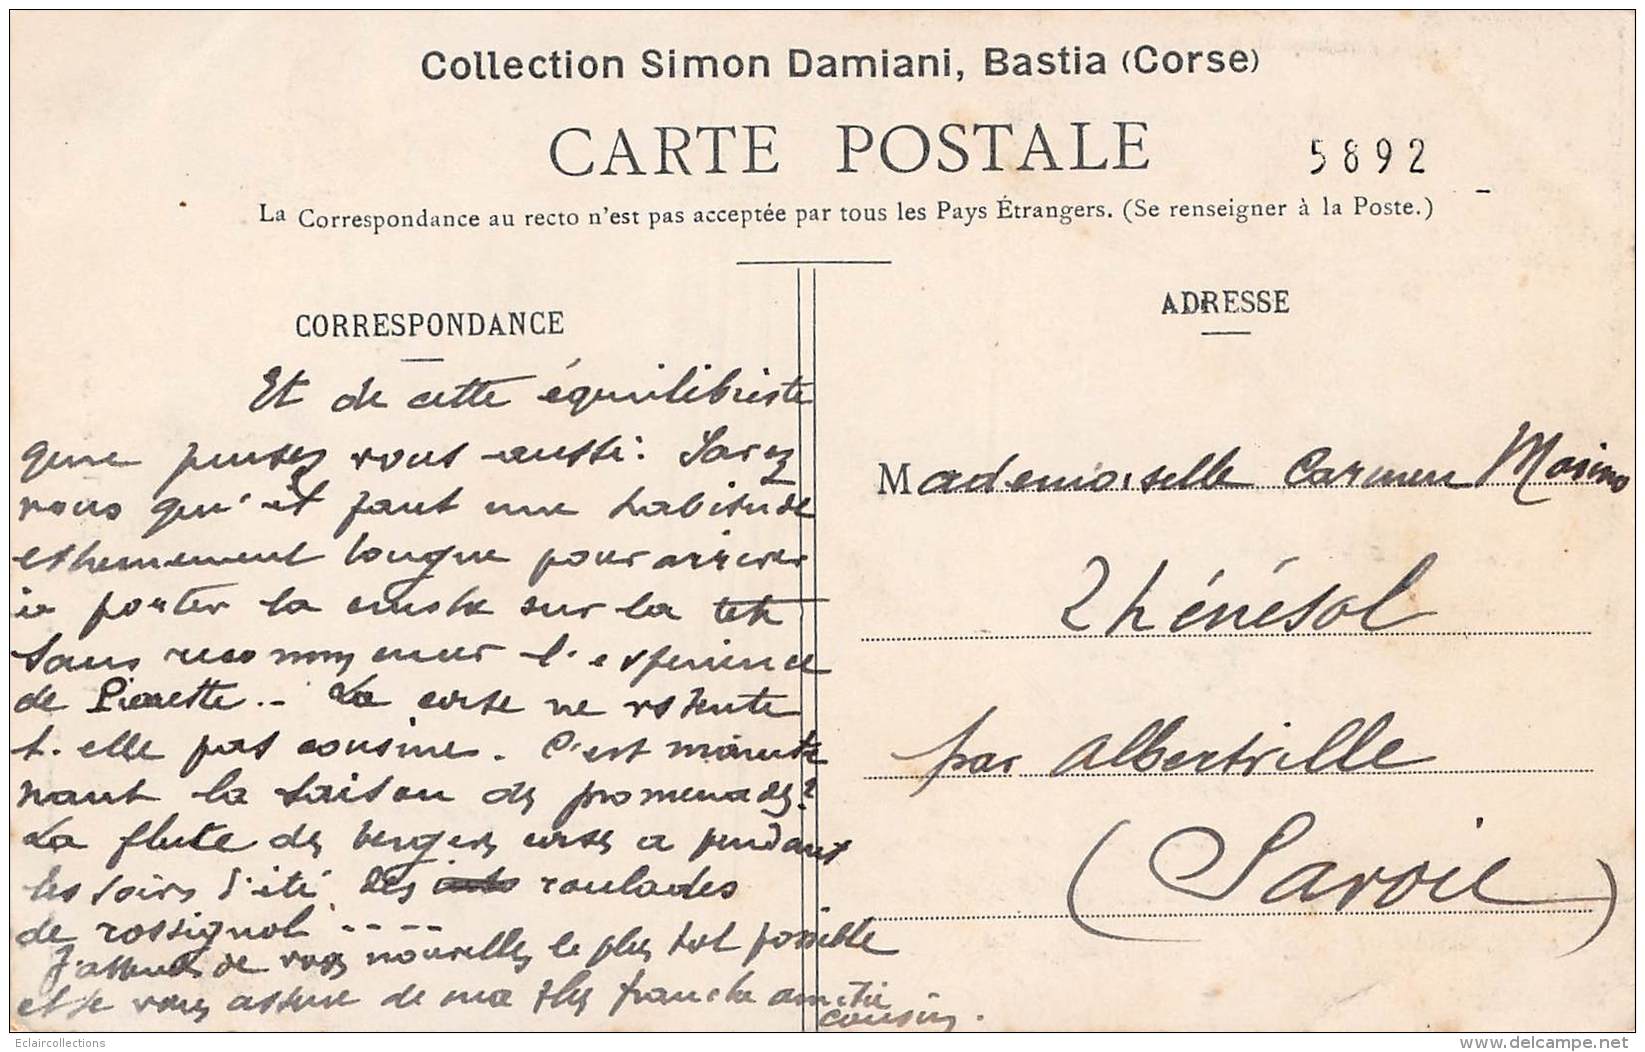 Collection Simon Damiani, Bastia (Corse)
CARTE POSTALE
5892
La Correspondance au recto n'est pas acceptée par tous les Pays Étrangers. (Se renseigner à la Poste.)
CORRESPONDANCE
Et de cette équilibriste
que pensez vous aussi. Savez
vous qu'il faut une habitude
extremement longue pour arriver
à porter la cruche sur la tete
sans l'experience
de Pierrette.. La corse ne vs tente
t. elle pas cousine. C'est mainte
nant la saison des promenades?
La flute des bergers corses a pendant
les soirs d'été les roulades
de rossignol ....
J'attends de vos nouvelles le plus tot possible
et je vous assure de ma plus franche amitié
cousin.
ADRESSE
Mademoiselle Carmen
Thénésol
par Albertville
(Savoie)
Eclaircollections
www.delcampe.net